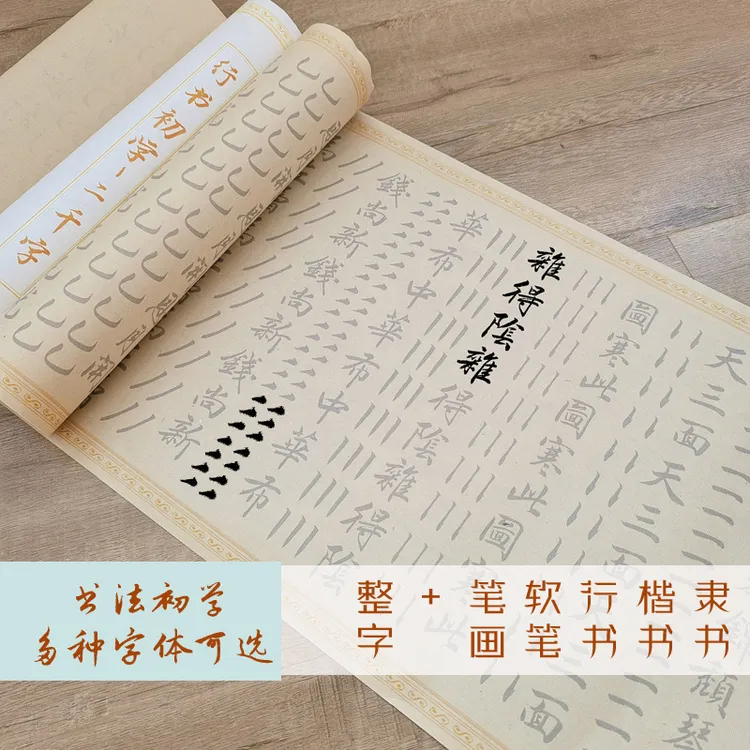 行书初字丶二千字
天三面天三面天三面
圖寒此圖寒此圖寒
雜得陰雜得陰雜得
華布中華布中華布
錢尚新錢尚新錢尚新
书法初学
多种字体可选
整 + 笔 软 行 楷 隶
字 画 笔 书 书 书